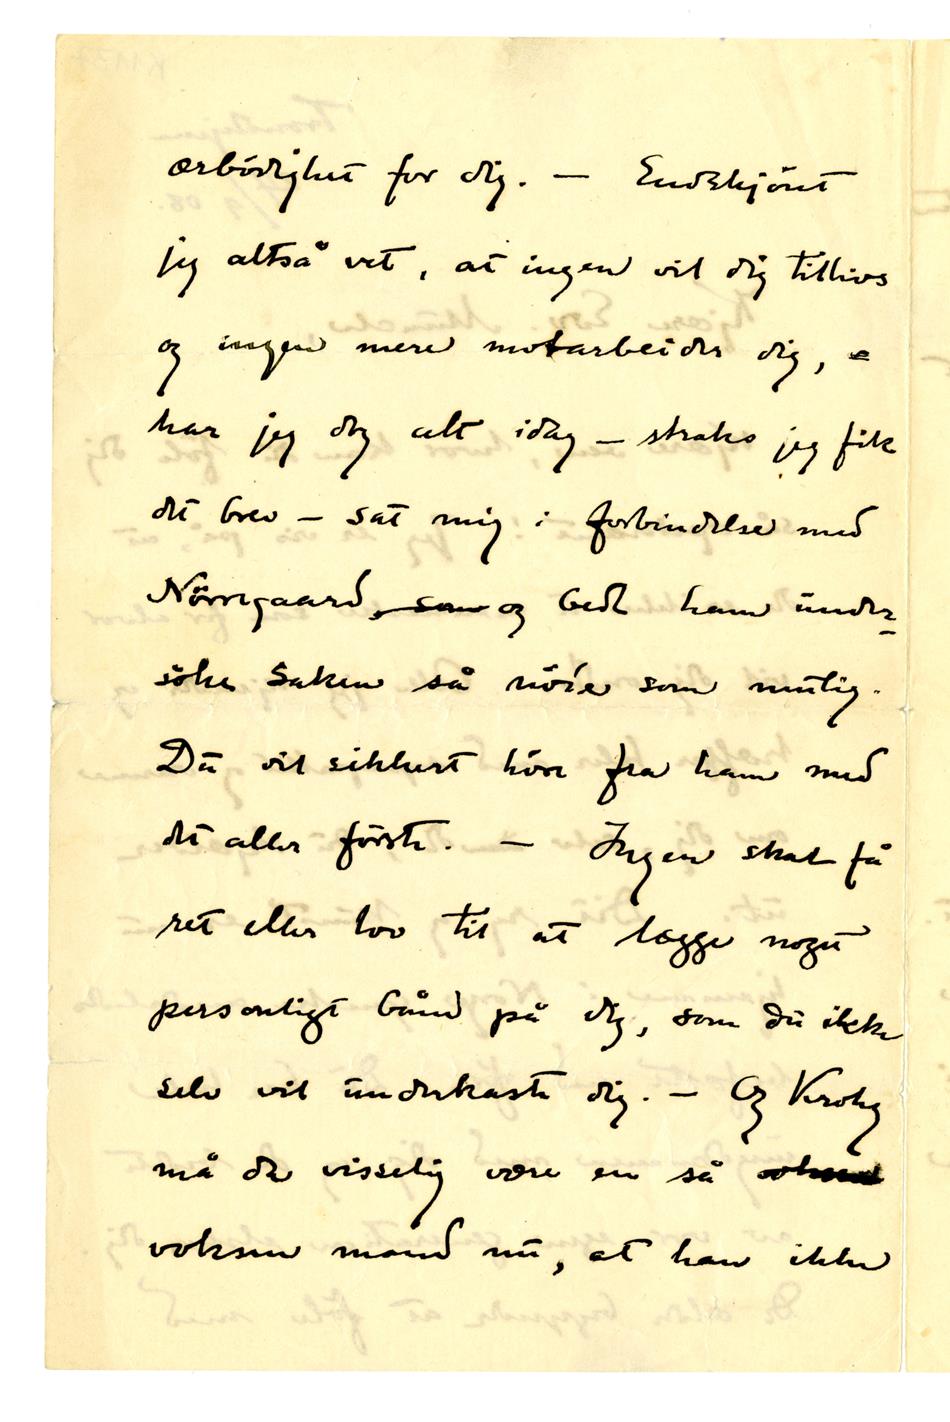 ærbödighet for dig. — Endskjönt
jeg altså vet, at ingen vil dig tillivs
og ingen mere motarbeider dig, –
har jeg dog alt idag – straks jeg fik
dit brev – sat mig i forbindelse med
Nörregaard, som og bedt ham under-
söke saken så nöie som mulig.
Du vil sikkert höre fra ham med
det aller förste. — Ingen skal få
ret eller lov til at lægge noget
personligt bånd på dig, som du ikke
selv vil underkaste dig. — Og Krohg
må da visselig være en så
voksen mand nu, at han ikke